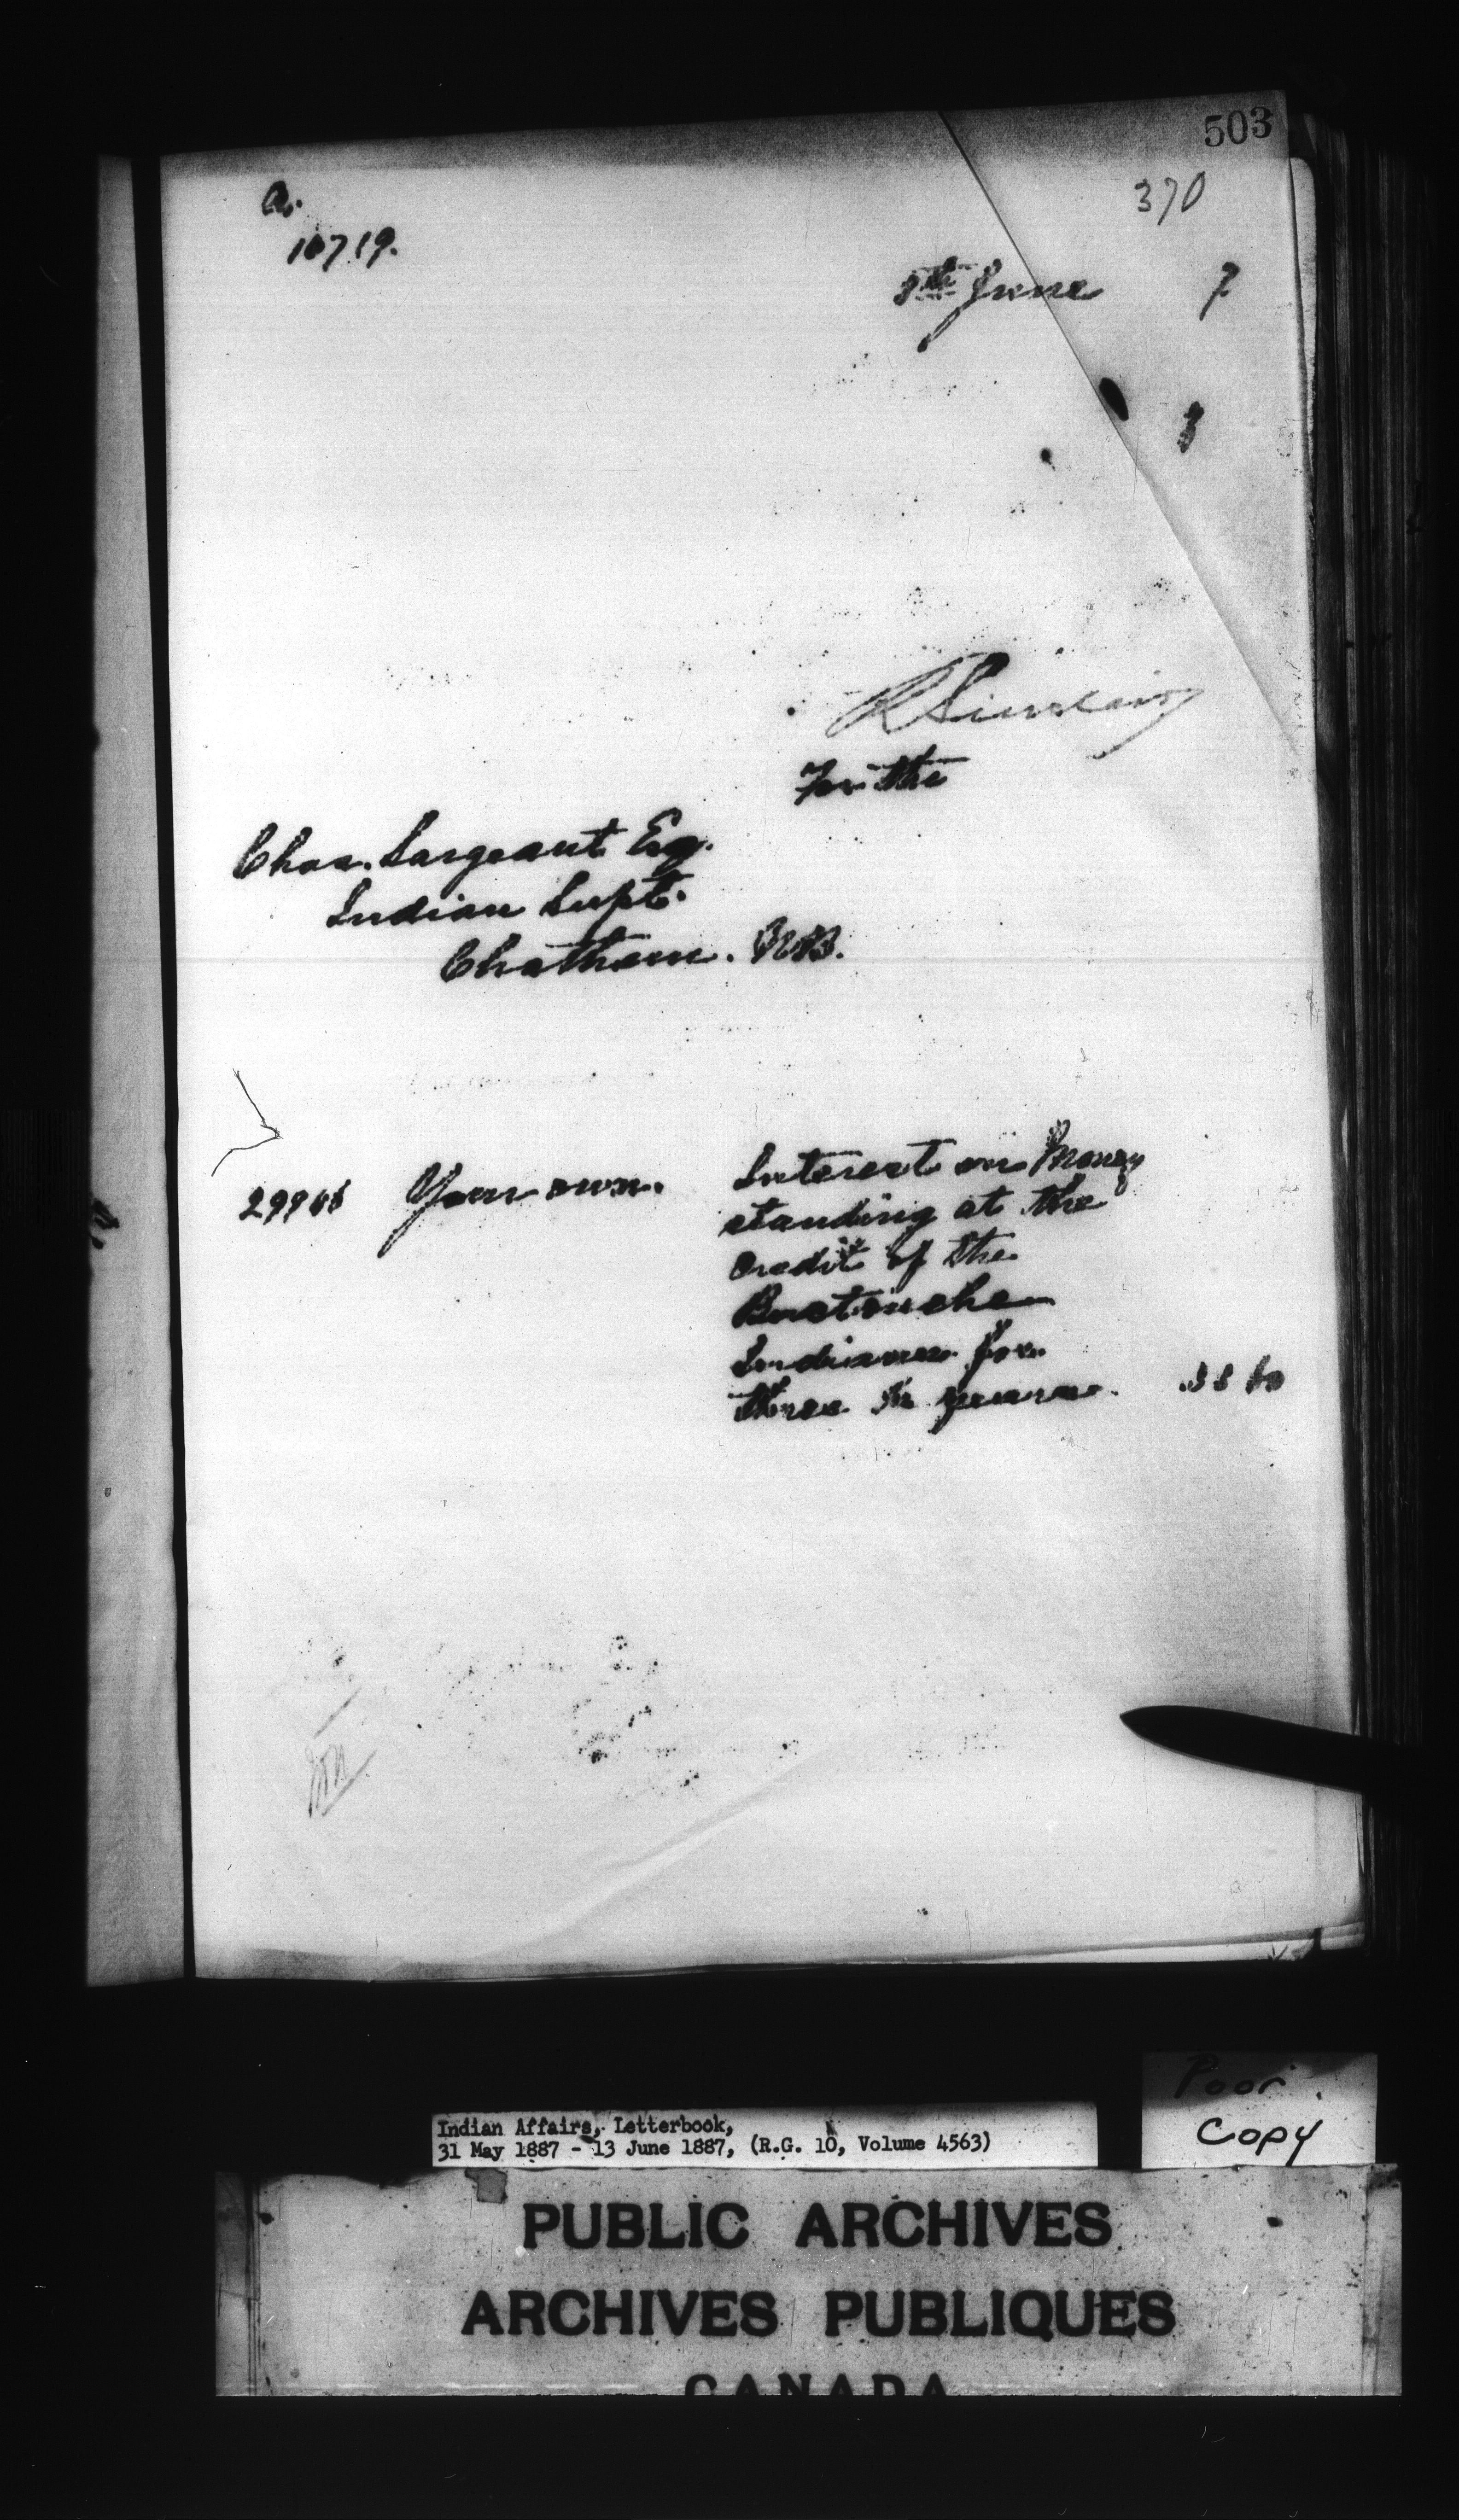 503
370
a.
10719.
8th June 7
R Sinclair
For the
Chas. Sargeant Esq.
Indian Supt.
Chatham. N.B.
Your own. Interest on Money
standing at the
credit of the
Buctouche
Indians for
three years.
Poor
Copy
Indian Affairs, Letterbook,
31 May 1887 - 13 June 1887, (R.G. 10, Volume 4563)
PUBLIC ARCHIVES
ARCHIVES PUBLIQUES
CANADA